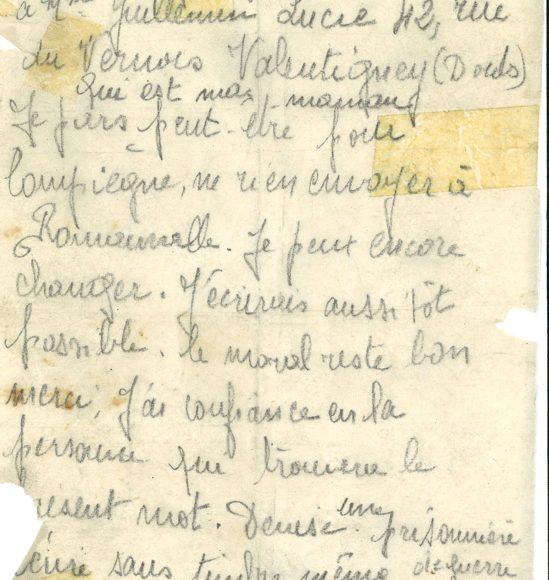 à Mme Guillemin Lucie 42, rue
du Vernois Valentigney (Doubs)
qui est ma maman
Je pars peut-être pour
Compiègne, ne rien envoyer à
Romainville. Je peux encore
changer. J'écrirais aussitôt
possible. le moral reste bon
merci, J'ai confiance en la
personne qui trouvera le
présent mot. Denise une prisonnière
de guerre
sans timbre même